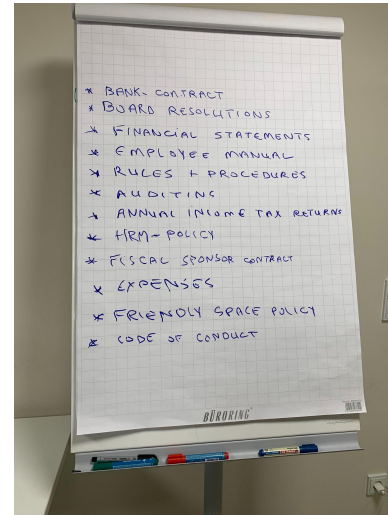 * BANK-CONTRACT
* BOARD RESOLUTIONS
* FINANCIAL STATEMENTS
* EMPLOYEE MANUAL
* RULES + PROCEDURES
* AUDITING
* ANNUAL INCOME TAX RETURNS
* HRM-POLICY
* FISCAL SPONSOR CONTRACT
* EXPENSES
* FRIENDLY SPACE POLICY
* CODE OF CONDUCT
BÜRORING